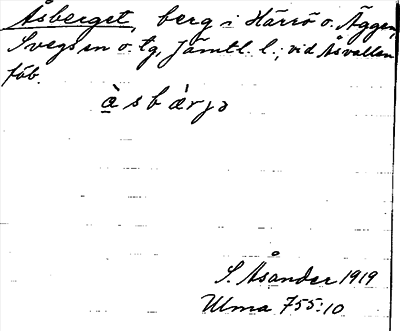 Åsberget, berg i Härrö o. Äggen,
Svegs sn o. tg, Jämtl. l., vid Åsvallen
fäb.
àsbàrjə
S. Åsander 1919
Ulma 755:10